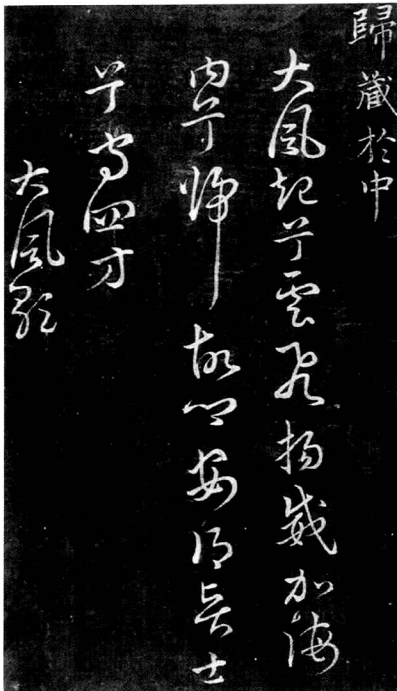 歸藏於中
大風起兮雲飛揚威加海
内兮歸故鄉安得士
兮守四方
大風歌